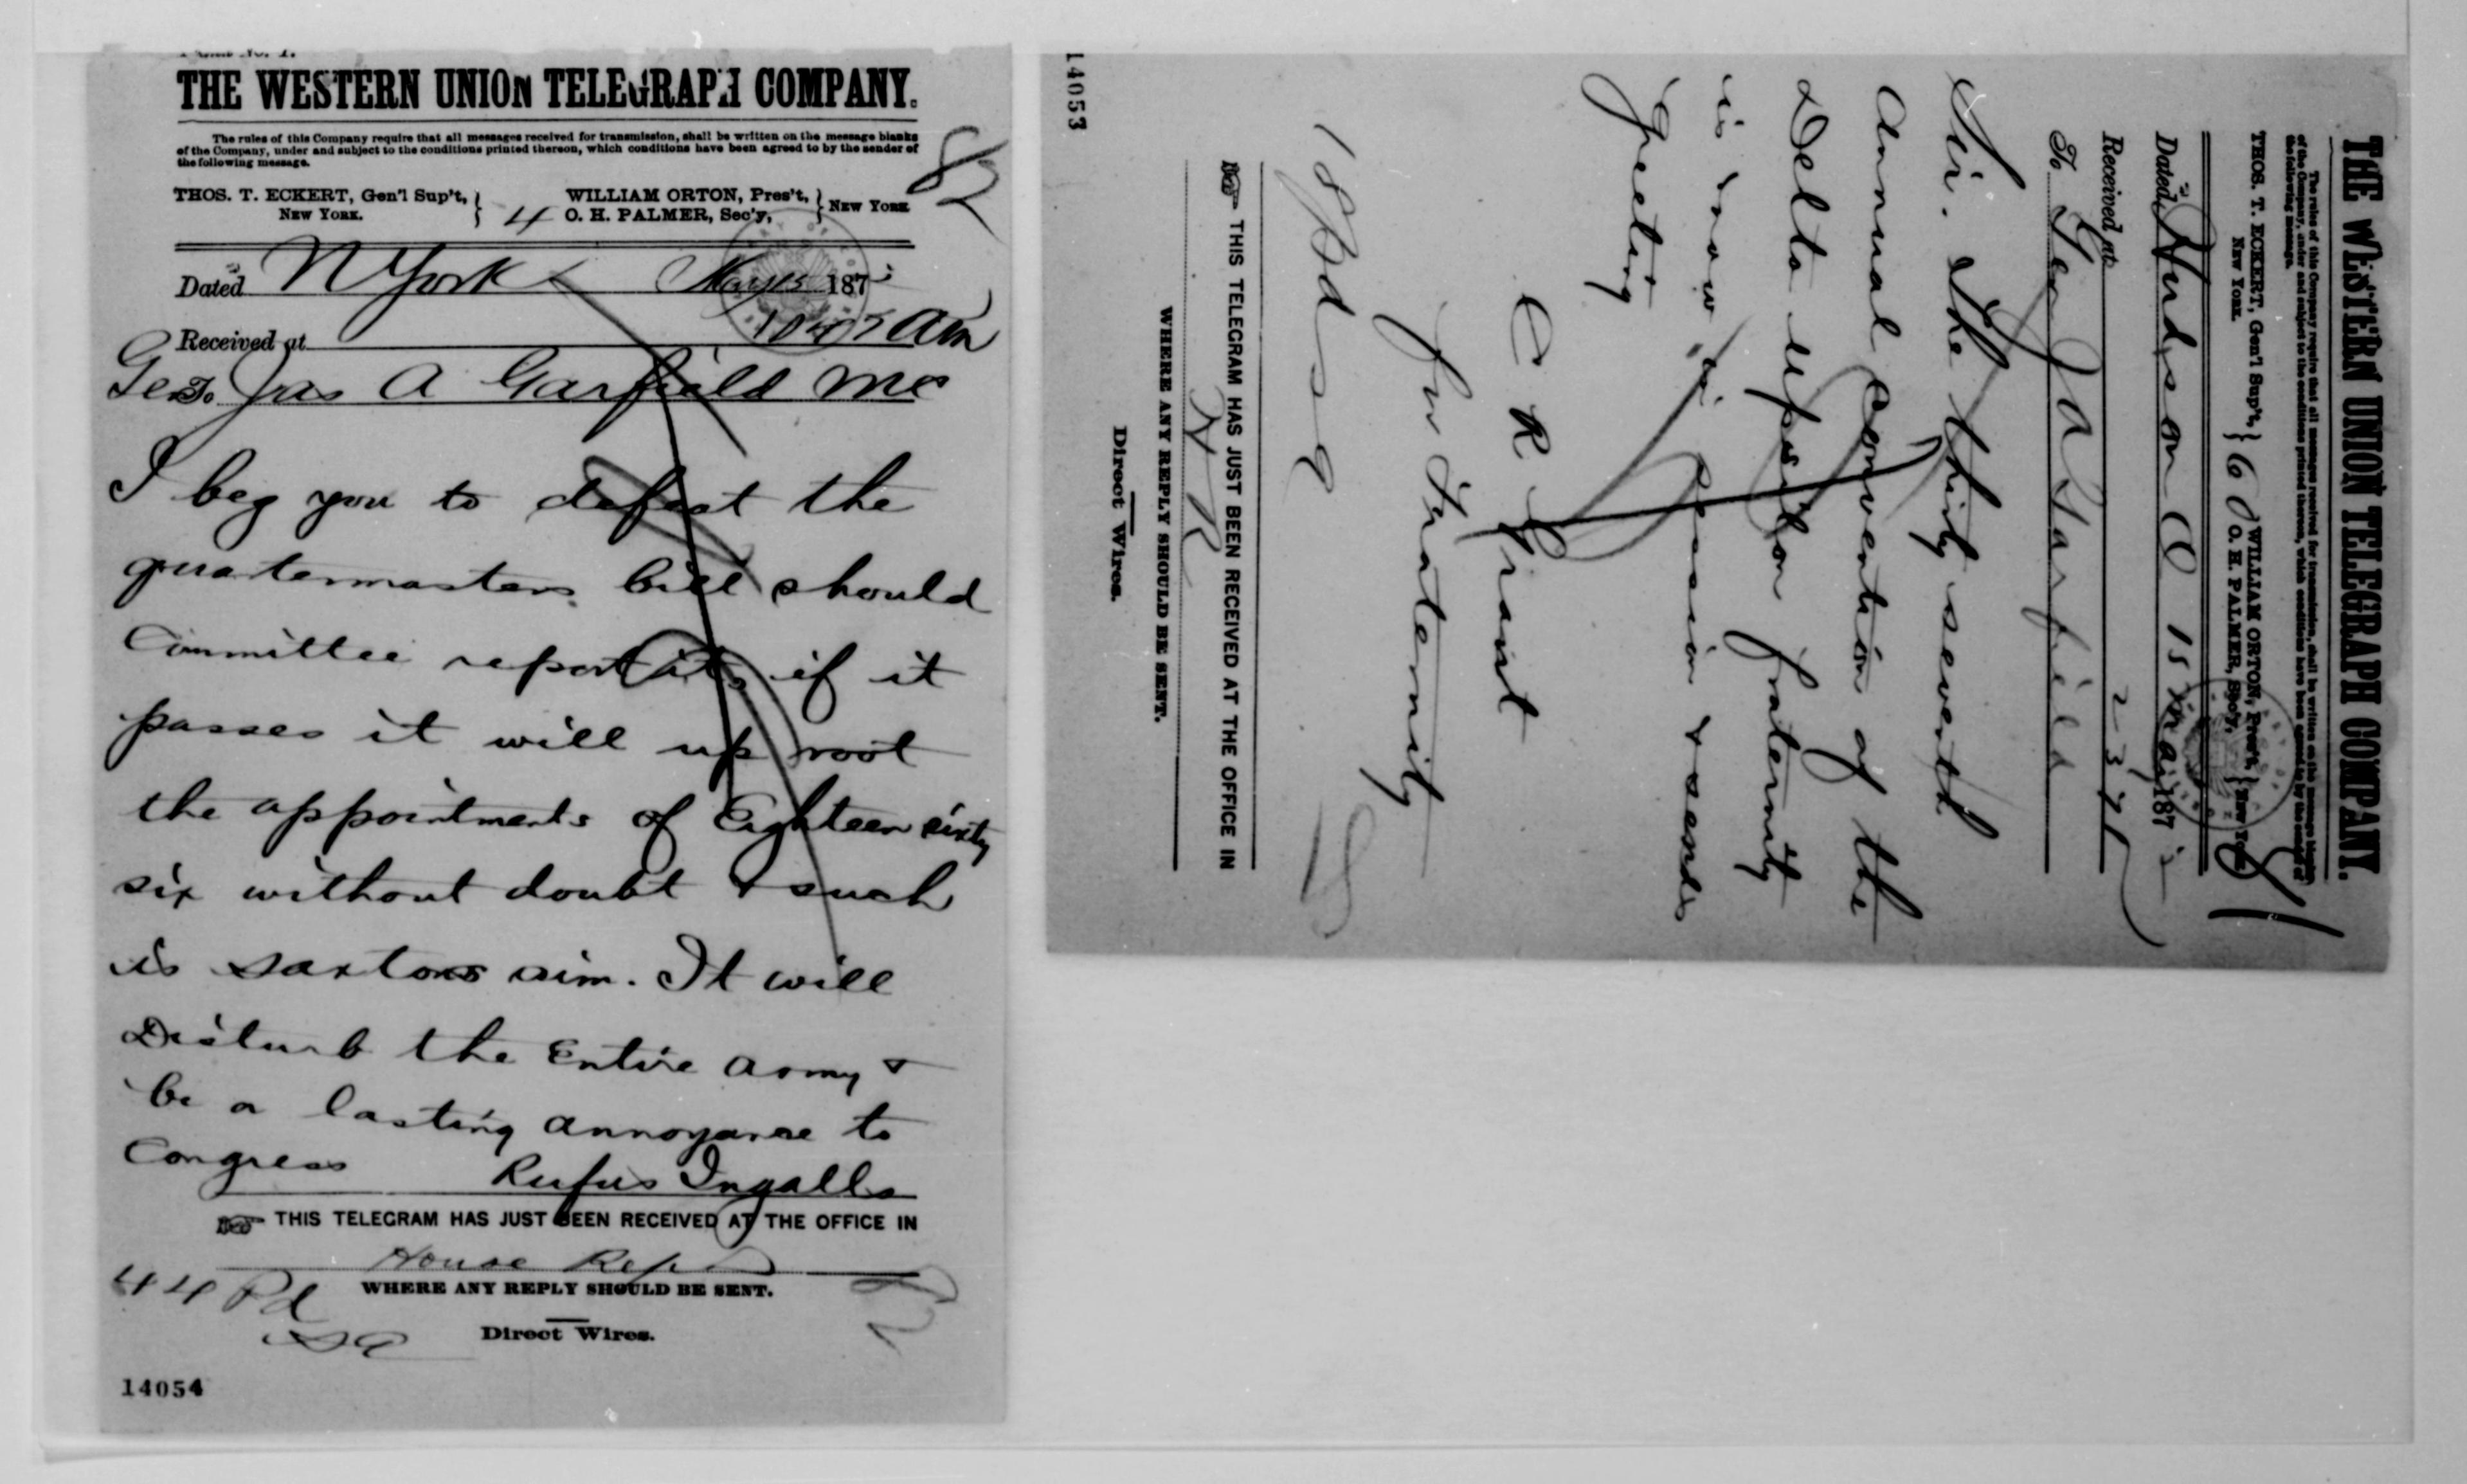 THE WESTERN UNION TELEGRAPH COMPANY.
The rules of this Company require that all messages received for transmission, shall be written on the message blanks
of the Company, under and subject to the conditions printed thereon, which conditions have been agreed to by the sender of
the following message.
82
THOS. T. ECKERT, Gen'l Sup't, NEW YORK.
4
WILLIAM ORTON, Pres't, O. H. PALMER, Sec'y, NEW YORK
Dated N York May 15 187
Received at 1047 am
Gen To Jas A Garfield Mc
I beg you to defeat the
quartermasters bill should
Committee report it, if it
passes it will up root
the appointments of Eighteen sixty
six without doubt & such
is saxtons aim. It will
Disturb the Entire army &
be a lasting annoyance to
Congress Rufus Ingalls
THIS TELEGRAM HAS JUST BEEN RECEIVED AT THE OFFICE IN
House Reps
44 Pd WHERE ANY REPLY SHOULD BE SENT.
Direct Wires.
14054
THE WESTERN UNION TELEGRAPH COMPANY.
The rules of this Company require that all messages received for transmission, shall be written on the message blanks
of the Company, under and subject to the conditions printed thereon, which conditions have been agreed to by the sender of
the following message.
THOS. T. ECKERT, Gen'l Sup't, NEW YORK.
60
WILLIAM ORTON, Pres't, O. H. PALMER, Sec'y, NEW YORK
Dated Hudson O 15 May 187
Received at 237
To Gen J A Garfield
Sir. The thirty seventh
annual convention of the
Delta Upsilon fraternity
is now in session & sends
Greeting
C R Grant
for Fraternity
18 pd
THIS TELEGRAM HAS JUST BEEN RECEIVED AT THE OFFICE IN
H R
WHERE ANY REPLY SHOULD BE SENT.
Direct Wires.
14053